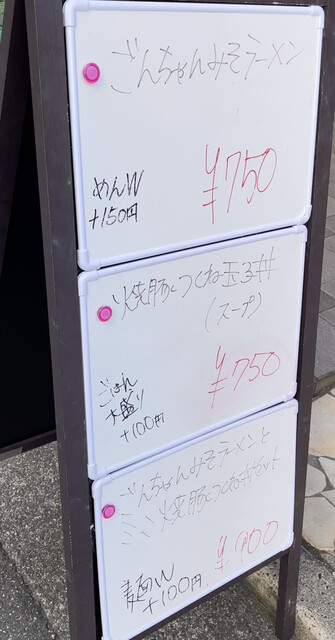 ごんちゃんみそラーメン
¥750
めんW
+150円
焼豚とつくね玉子丼
(スープ)
¥750
ごはん
大盛り
+100円
ごんちゃんみそラーメンと
焼豚とつくね丼セット
麺W
+100円